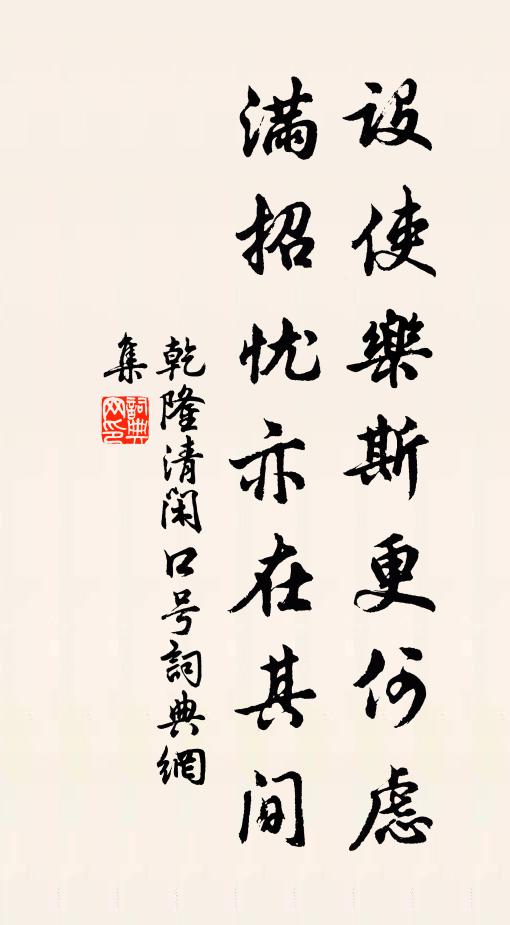 設使樂斯更何慮
滿招忧亦在其间
乾隆清閑口号詞典網
集
詞典
网印